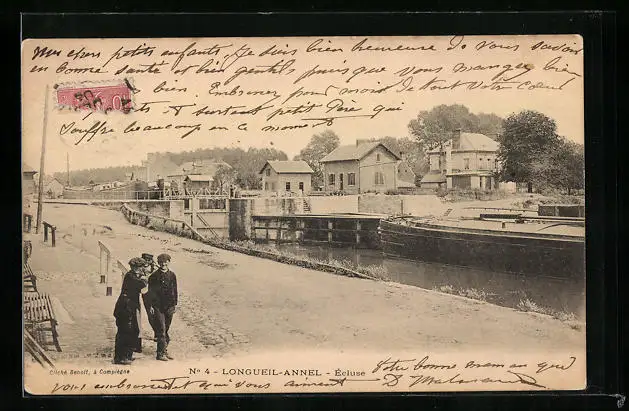 Mes chers petits enfants, Je suis bien heureuse de vous savoir
en bonne santé et bien gentils puisque vous mangez bien
bien. Embrassez pour moi de tout votre cœur
et surtout petit Père qui
souffre beaucoup en ce moment
Cliché Benoit, à Compiègne
Nº 4 - LONGUEIL-ANNEL - Écluse
Votre bonne maman qui
vous embrasse et qui vous aime